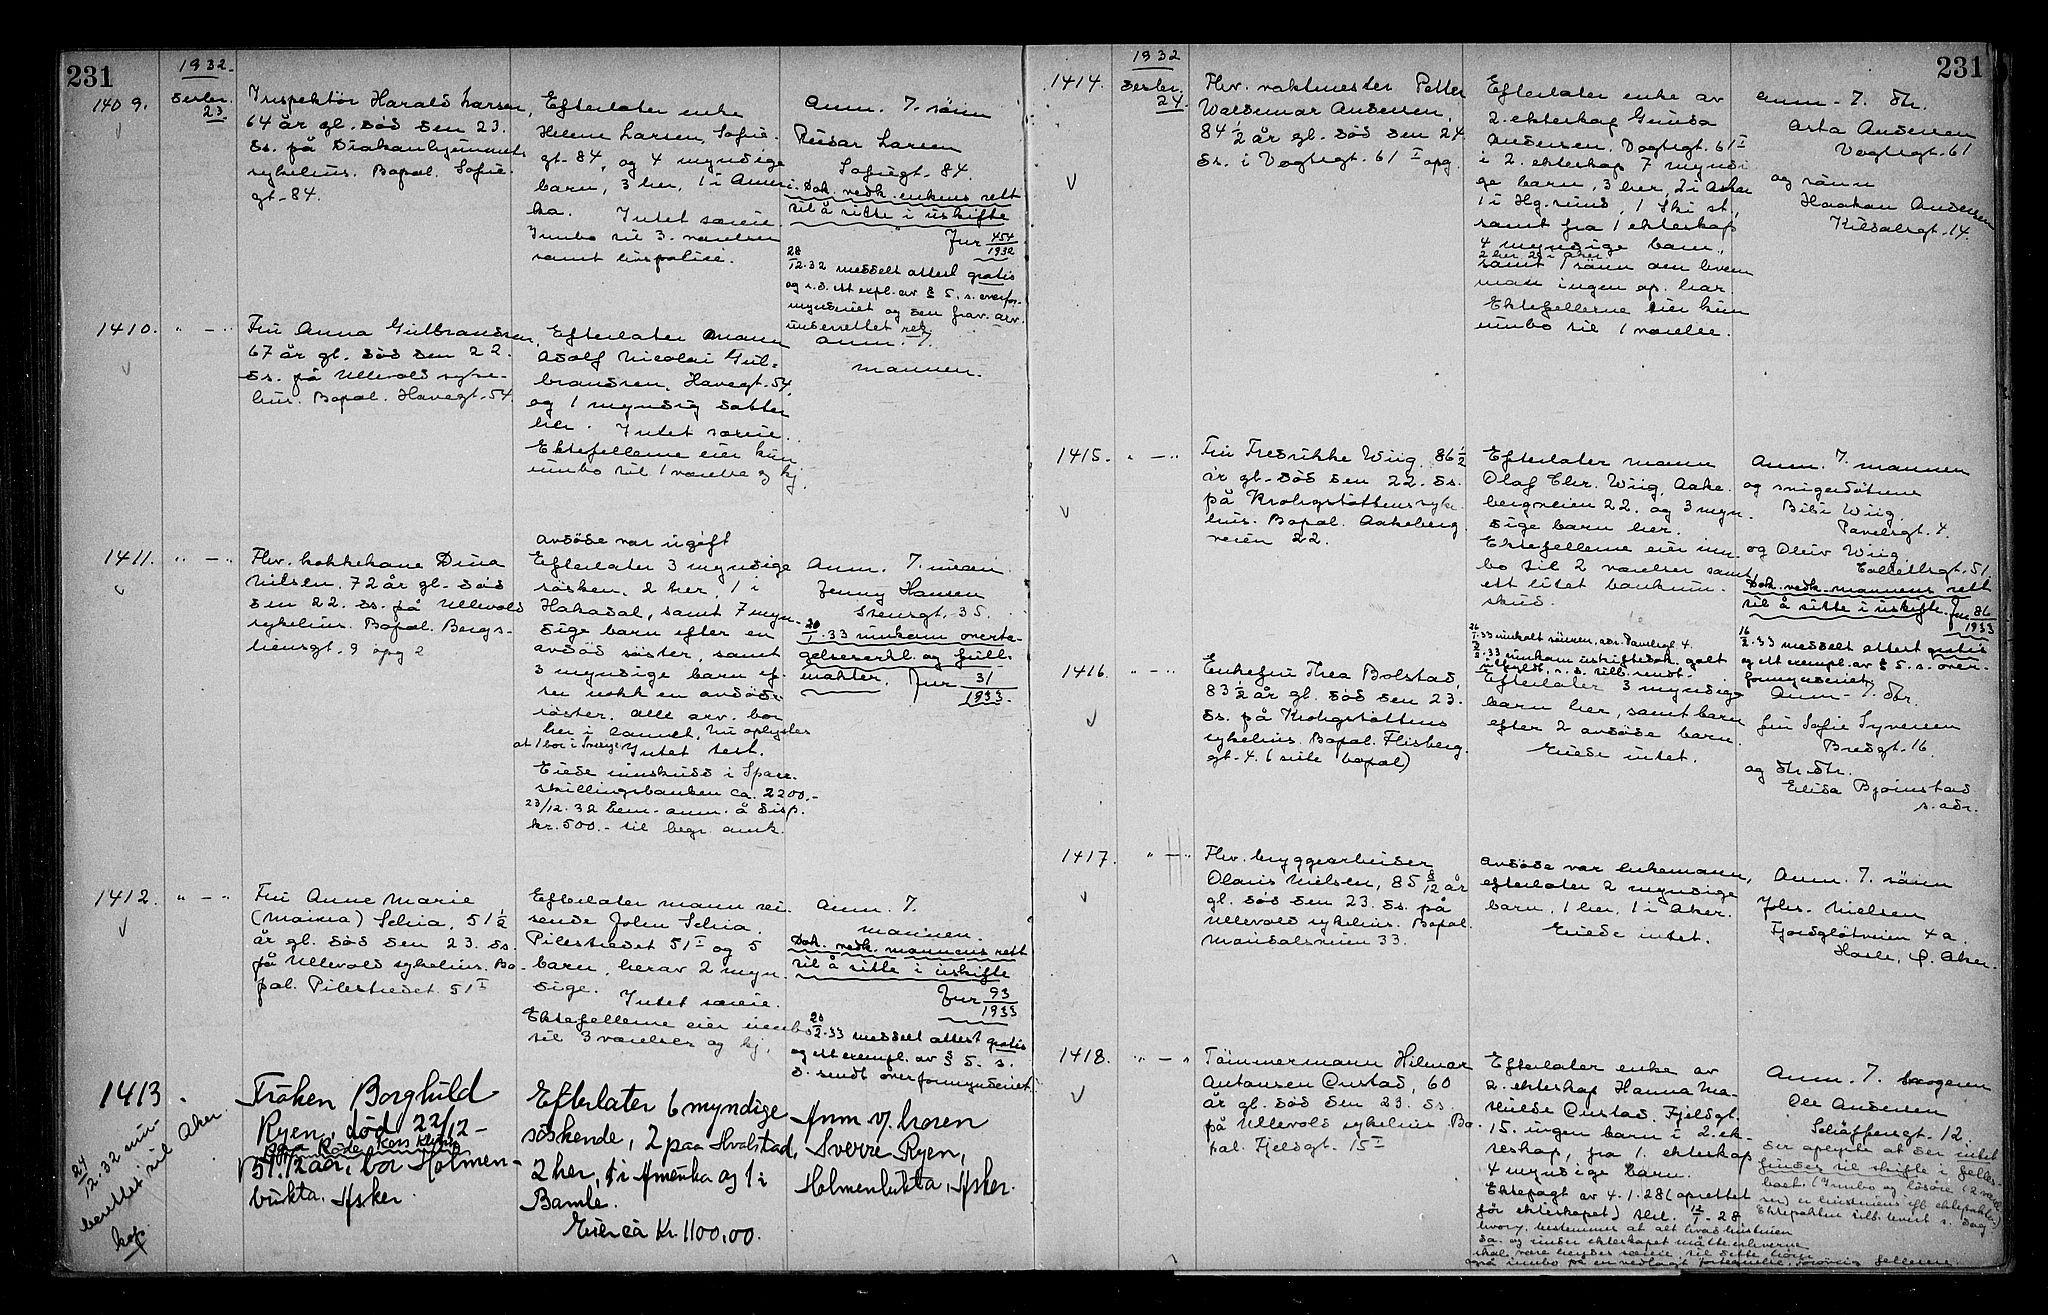 231
1932.
1409.
Desbr.
23
Inspektör Harald Larsen,
64 år gl. död den 23.
ds. på Diakonhjemmets
sykehus. Bopæl. Sofie-
gt. 84.
Efterlater enke
Helene Larsen, Sofie-
gt. 84, og 4 myndige
barn, 3 her, 1 i Ameri-
ka. Intet særeie.
Innbo til 3. værelser
samt livspolice.
Anm. v. sönn
Reidar Larsen
Sofiegt. 84.
Dok. vedk. enkens rett
til å sitte i uskifte
Jnr 454/1932
28/12.32 meddelt attest gratis
og s.d. ett expl. av § 5. s. overfor-
mynderiet og den frav. arv.
underrettet rek.
1410.
" — "
Fru Anna Gulbrandsen,
67 år gl. död den 22.
ds. på Ullevold syke-
hus. Bopæl. Havegt. 54.
Efterlater mann
Adolf Nicolai Gul-
brandsen, Havegt. 54,
og 1 myndig datter
her. Intet særeie.
Ektefellerne eier kun
innbo til 1 værelse og kj.
Anm. v.
mannen.
1411.
" — "
Fhv. kokkekone Dina
Nilsen. 72 år gl. död
den 22. ds. på Ullevold
sykehus. Bopæl. Bergs-
liensgt. 9 opg 2
Avdöde var ugift
Efterlater 3 myndige
sösken, 2 her, 1 i
Hakadal, samt 7 myn-
dige barn efter en
avdöd söster, samt
3 myndige barn ef-
ter nokk en avdöd
söster. Alle arv. bor
her i landet, nu oplystes
at 1 bor i Sverige. Intet test.
Eiede innskudd i Spare-
skillingsbanken ca. 2200.-
23/12.32 bem. anm. å disp.
kr. 500.- til begr. omk.
Anm. v. niesen
Jenny Hansen
Stensgt. 35.
20/1.33 innkom overta-
gelseserkl. og full-
makter. Jnr 31/1933.
1412.
" — "
Fru Anne Marie
(Maima) Schia, 51 1/2
år gl. död den 23. ds.
på Ullevold sykehus. Bo-
pæl. Pilestredet 51 I
Efterlater mann rei-
sende John Schia.
Pilestredet 51 I og 5
barn, herav 2 myn-
dige. Intet særeie.
Ektefellerne eier innbo
til 3 værelser og kj.
Anm. v.
mannen.
Dok. vedk. mannens rett
til å sitte i uskifte
Jnr 93/1933
20/2.33 meddelt attest gratis
og ett exempl. av § 5. s.
d. sendt overformynderiet.
1413
Fröken Borghild
Ryen, död 22/12 -
paa Röde Kors Klinik
51 1/2 aar, bor Holmen-
bukta. Asker.
Efterlater 6 myndige
söskende, 2 paa Hvalstad,
2 her, 1 i Amerika og 1 i
Bamle.
Eier ca Kr. 1100,00.
Anm v/ broren
Sverre Ryen,
Holmenbukta, Asker.
24/12.32 inn-
berettet til Aker.
231
1932
1414.
Desbr.
24.
Fhv. vaktmester Petter
Waldemar Andersen,
84 1/2 år gl. död den 24.
ds. i Vogtsgt. 61 I opg.
Efterlater enke av
2. ekteskap Gunda
Andersen, Vogtsgt. 61 I
i 2. ekteskap 7 myndi-
ge barn, 3 her, 2 i Asker
1 i Hg.sund, 1 Ski st.,
samt fra 1 ekteskap
4 myndige barn,
2 her, 2 i Aker
samt 1 sönn om hvem
man ingen op. har.
Ektefellerne eier kun
innbo til 1 værelse.
Anm. v. dtr.
Asta Andersen
Vogtsgt. 61
og sönn
Haakon Andersen
Kildalsgt. 14.
1415.
" — "
Fru Fredrikke Wiig, 86 1/2
år gl. död den 22. ds.
på Krohgstöttens syke-
hus. Bopæl. Aakeberg-
veien 22.
Efterlater mann
Olaf Chr. Wiig, Aake-
bergveien 22. og 3 myn-
dige barn her.
Ektefellerne eier inn-
bo til 2 værelser samt
ett litet bankinn-
skud.
Anm. v. mannen
og svigerdötrene
Bibi Wiig
Pavelsgt. 4.
og Oluv Wiig
Dok. vedk. mannens rett
til å sitte i uskifte. Jnr 86/1933
16/2.33 meddelt attest gratis
og ett exempl. av § 5. s. over-
formynderiet.
1416.
" — "
Enkefru Thea Bolstad,
83 1/2 år gl. död den 23.
ds. på Krohgstöttens
sykehus. Bopæl. Flisberg-
gt. 4. (siste bopæl)
Efterlater 3 myndige
barn her, samt barn
efter 2 avdöde barn.
Eiede intet.
Anm. v. dtr.
fru Sofie Syversen
Bredgt. 16.
og dtr. dtr.
Elida Bjömstad
s. adr.
1417.
" — "
Fhv. bryggearbeider
Olaus Nielsen, 85 8/12 år
gl. död den 23. ds. på
Ullevold sykehus. Bopæl.
Maridalsveien 33.
Avdöde var enkemann,
efterlater 2 myndige
barn, 1 her, 1 i Aker.
Eiede intet.
Anm. v. sönn
Johs. Nielsen
Fjordglötveien 4a.
Hasle, Ö. Aker.
1418.
" — "
Tömmermann Hilmar
Antonsen Onstad, 60
år gl. död den 23. ds.
på Ullevold sykehus. Bo-
pæl. Fjeldgt. 15 I
Efterlater enke av
2. ekteskap Hanna Ma-
thilde Onstad. Fjeldgt.
15. ingen barn i 2. ek-
teskap, fra 1. ekteskap
4 myndige barn.
Ektepagt av 4.1.28 (oprettet
för ekteskapet)
Anm. v. svogeren
Ole Andersen
Schäffersgt. 12.
der oplyste at der intet
finder til skifte i felles-
boet.